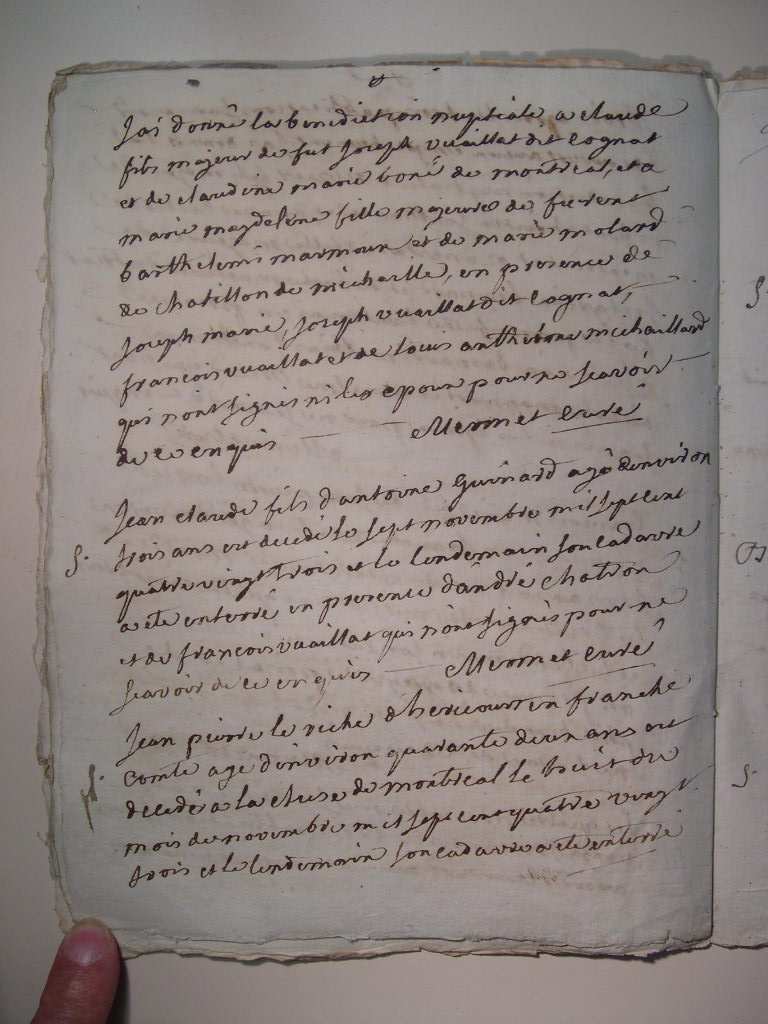 Jai donné la benediction nuptiale a claude
fils majeur de fut Joseph vuaillat dit Cognat
et de claudine marie boné de montreal, et a
marie magdeléne fille majeure de furent
barthelemi marmoux et de marie molard
de chatillon de michaille, en presence de
Joseph marie, Joseph vuaillat dit Cognat,
francois vuaillat et de louis anthelme michaillard
qui nont signes ni les epoux pour ne scavoir
de ce enquis Mermet Curé
Jean claude fils dantoine Guinard agé denviron
S. trois ans est decedé le sept novembre mil sept cent
quatre vingt trois et le lendemain son cadavre
a ete enterré en presence dândré Chatron
et de francois vuaillat qui nônt signès pour ne
scavoir de ce enquis Mermet curé
Jean pierre le riche dhericourt en franche
S. Comte age dénviron quarante deux ans est
decedé a la cluse de montreal le huit du
mois de novembre mil sept cent quatre vingt
trois et le lendemain son cadavre a ete enterré